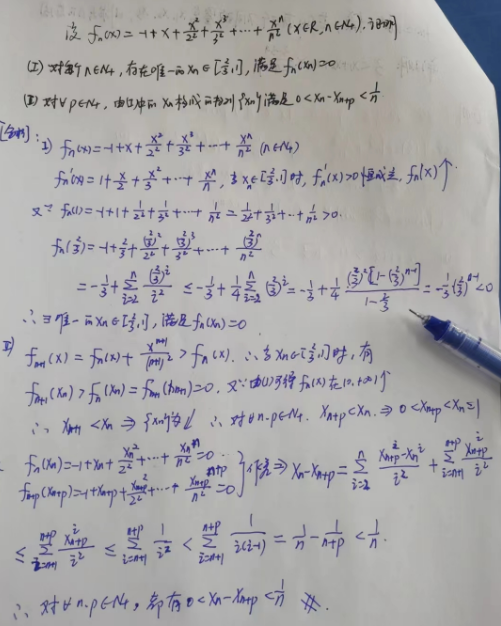 设 fₙ(x)=-1+x+x²/2²+x³/3²+…+xⁿ/n² (x∈R, n∈N₊). 证明
(Ⅰ) 对每个n∈N₊, 存在唯一的xₙ∈[2/3,1], 满足fₙ(xₙ)=0
(Ⅱ) 对∀p∈N₊, 由(Ⅰ)中的xₙ构成的数列{xₙ}满足0<xₙ-xₙ₊ₚ<1/n
Ⅰ) fₙ(x)=-1+x+x²/2²+x³/3²+…+xⁿ/n² (n∈N₊)
fₙ'(x)=1+x/2+x²/3+…+xⁿ/n, 当xₙ∈[2/3,1]时, fₙ'(x)>0恒成立, fₙ'(x)↑
又∵ fₙ(1)=-1+1+1/2²+1/3²+…+1/n²=1/2²+1/3²+…+1/n²>0.
fₙ(2/3)=-1+2/3+(2/3)²/2²+(2/3)³/3²+…+(2/3)ⁿ/n²
=-1/3+∑ⁿᵢ₌₂(2/3)ⁱ/i² ≤-1/3+1/4∑ⁿᵢ₌₂(2/3)ⁱ=-1/3+1/4·(2/3)²[1-(2/3)ⁿ⁻¹]/(1-2/3)=-1/3·(2/3)ⁿ⁻¹<0
∴ ∃唯一的xₙ∈[2/3,1], 满足fₙ(xₙ)=0
Ⅱ) fₙ₊₁(x)=fₙ(x)+xⁿ⁺¹/(n+1)²>fₙ(x). ∴当xₙ∈[2/3,1]时, 有
fₙ₊₁(xₙ)>fₙ(xₙ)=fₙ₊₁(xₙ₊₁)=0. 又∵由(1)可得fₙ(x)在(0,+∞)↑
∴ xₙ₊₁<xₙ ⇒{xₙ}为↓ ∴对∀n·p∈N₊. xₙ₊ₚ<xₙ. ⇒ 0<xₙ₊ₚ<xₙ≤1
fₙ(xₙ)=-1+xₙ+xₙ²/2²+…+xₙⁿ/n²=0.
fₙ₊ₚ(xₙ₊ₚ)=-1+xₙ₊ₚ+xₙ₊ₚ²/2²+…+xₙ₊ₚⁿ⁺ᵖ/n²=0 }作差⇒ xₙ-xₙ₊ₚ=∑ⁿᵢ₌₂(xₙ₊ₚⁱ-xₙⁱ)/i²+∑ⁿ⁺ᵖᵢ₌ₙ₊₁xₙ₊ₚⁱ/i²
≤∑ⁿ⁺ᵖᵢ₌ₙ₊₁xₙ₊ₚⁱ/i² ≤∑ⁿ⁺ᵖᵢ₌ₙ₊₁1/i²<∑ⁿ⁺ᵖᵢ₌ₙ₊₁1/i(i-1)=1/n-1/(n+p)<1/n.
∴ 对∀n·p∈N₊, 都有0<xₙ-xₙ₊ₚ<1/n #.